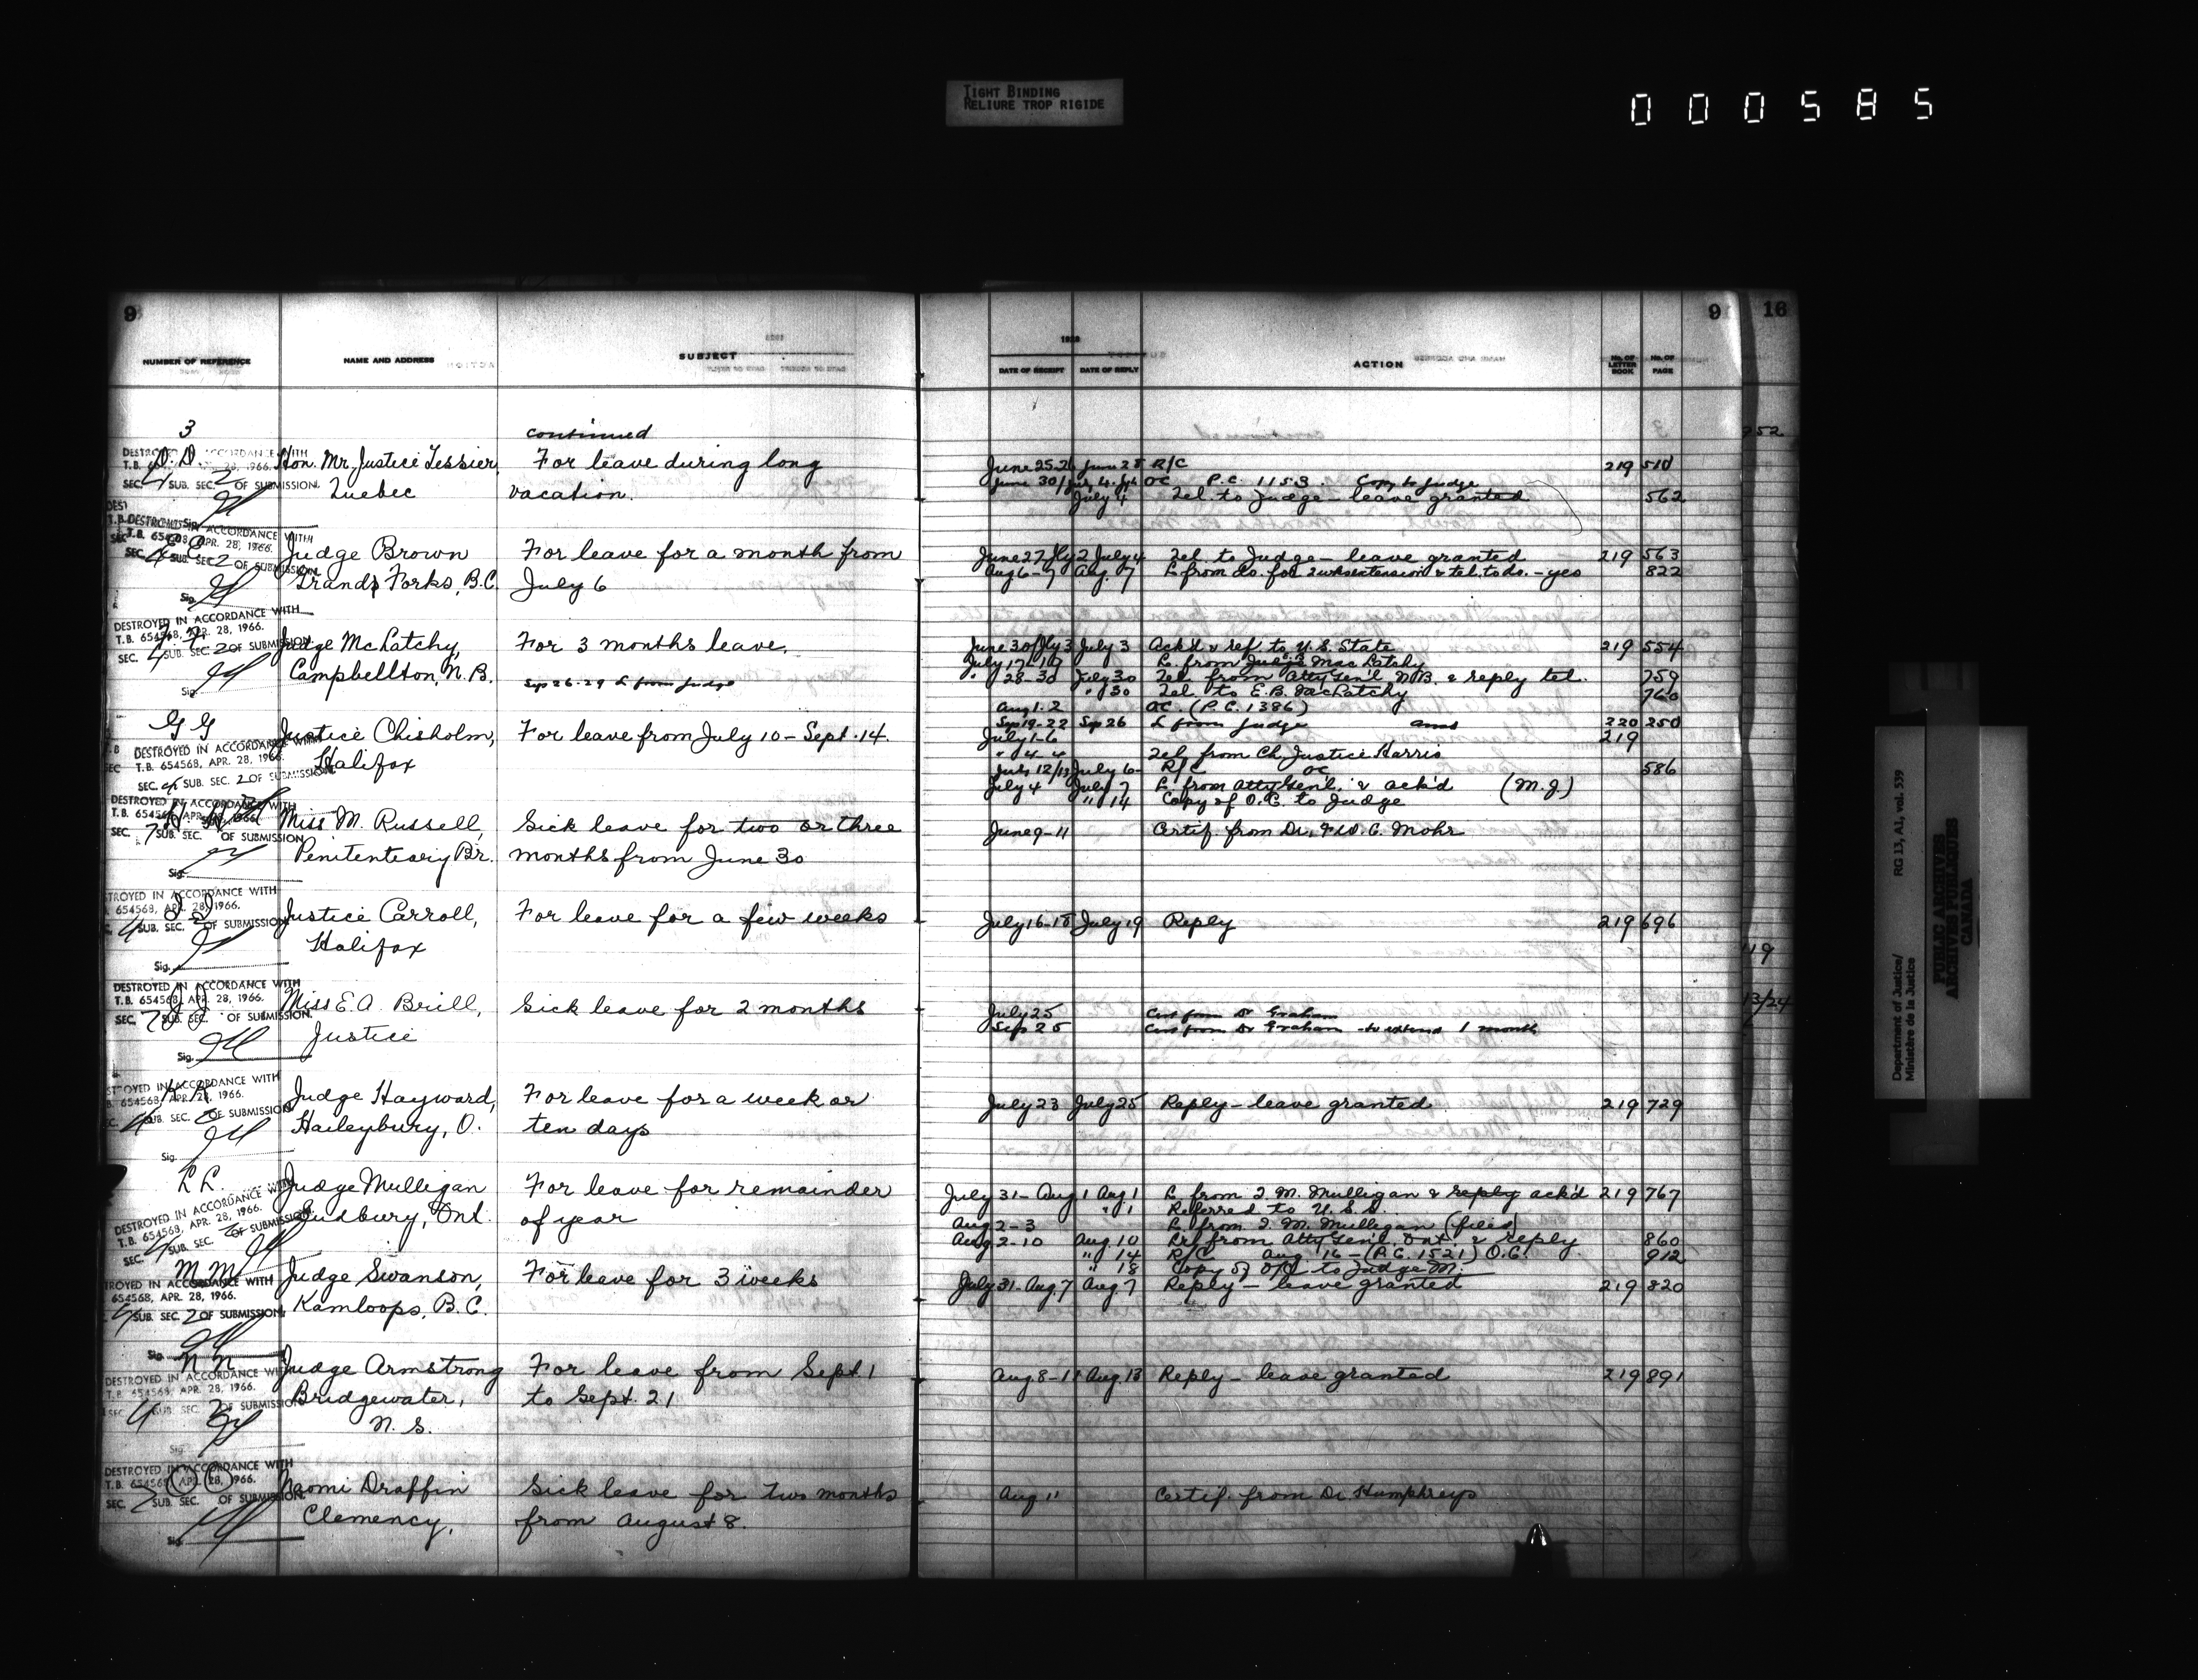 TIGHT BINDING
RELIURE TROP RIGIDE
000585
9
NUMBER OF REFERENCE NAME AND ADDRESS SUBJECT
3 continued
D.D. Hon. Mr. Justice Tessier, For leave during long
Quebec vacation.
DESTROYED IN ACCORDANCE WITH
T.B. 654568, APR. 28, 1966.
SEC. 4 SUB. SEC. 2 OF SUBMISSION.
Judge Brown For leave for a month from
Grand Forks, B.C. July 6
DESTROYED IN ACCORDANCE WITH
T.B. 654568, APR. 28, 1966.
SEC. 4 SUB. SEC. 2 OF SUBMISSION.
Sig.
Judge McLatchy, For 3 months leave.
Campbellton, N.B. Sep 26-29 L from Judge
DESTROYED IN ACCORDANCE WITH
T.B. 654568, APR. 28, 1966.
SEC. 4 SUB. SEC. 2 OF SUBMISSION.
Sig.
GG Justice Chisholm, For leave from July 10 - Sept. 14.
Halifax
DESTROYED IN ACCORDANCE WITH
T.B. 654568, APR. 28, 1966.
SEC. 4 SUB. SEC. 2 OF SUBMISSION.
Miss M. Russell, Sick leave for two or three
Penitentiary Br. months from June 30
DESTROYED IN ACCORDANCE WITH
T.B. 654568, APR. 28, 1966.
SEC. 7 SUB. SEC. OF SUBMISSION
Sig.
Justice Carroll, For leave for a few weeks
Halifax
DESTROYED IN ACCORDANCE WITH
654568, APR. 28, 1966.
4 SUB. SEC. 2 OF SUBMISSION.
Sig.
JJ Miss E.A. Brill, Sick leave for 2 months
Justice
DESTROYED IN ACCORDANCE WITH
T.B. 654568, APR. 28, 1966.
SEC. 7 SUB. SEC. OF SUBMISSION.
Sig.
KK Judge Hayward, For leave for a week or
Haileybury, O. ten days
DESTROYED IN ACCORDANCE WITH
654568, APR. 28, 1966.
4 SUB. SEC. 2 OF SUBMISSION
Sig.
LL. Judge Mulligan For leave for remainder
Sudbury, Ont. of year
DESTROYED IN ACCORDANCE WITH
T.B. 654568, APR. 28, 1966.
SEC. 4 SUB. SEC. 2 OF SUBMISSION.
MM Judge Swanson, For leave for 3 weeks
Kamloops, B.C.
DESTROYED IN ACCORDANCE WITH
654568, APR. 28, 1966.
4 SUB. SEC. 2 OF SUBMISSION.
Sig.
NN Judge Armstrong For leave from Sept 1
Bridgewater, to Sept. 21
N.S.
DESTROYED IN ACCORDANCE WITH
T.B. 654568, APR. 28, 1966.
SEC. 4 SUB. SEC. 2 OF SUBMISSION
Sig.
Naomi Draffin Sick leave for two months
Clemency, from August 8.
DESTROYED IN ACCORDANCE WITH
T.B. 654568, APR. 28, 1966.
SEC. 7 SUB. SEC. OF SUBMISSION.
Sig.
9 16
1928
DATE OF RECEIPT DATE OF REPLY ACTION No. OF LETTER BOOK No. OF PAGE
June 25-26 June 28 R/C 219 510
June 30/ July 4 OC P.C. 1153. Copy to Judge
July 4 Tel. to Judge - leave granted 562
June 27 Jly 2 July 4 Tel. to Judge - leave granted 219 563
Aug 6-7 Aug. 7 L from do. for 2 wks extension & tel. to do. - yes 822
June 30/Jly 3 July 3 Ack'd & ref. to U.S. State 219 554
July 17-19 L. from Judge MacLatchy
" 28-30 July 30 Tel. from Atty Gen'l N.B. & reply tel. 759
" 30 Tel. to E.B. MacLatchy 760
Aug 1-2 OC. (P.C. 1386)
Sep 19-22 Sep 26 L from Judge 220 250
July 1-6 219
" 4-4 Tel. from Ch. Justice Harris
July 12/13 July 6 R/C OC 586
July 4 July 7 L. from Atty Gen'l. & ack'd (M.J)
" 14 Copy of O.C. to Judge
June 9-11 Certif. from Dr. F.W.C. Mohr
July 16-18 July 19 Reply 219 696
July 25 Cert from Dr Graham
Sep 25 Cert from Dr Graham - to extend 1 month
July 23 July 25 Reply - leave granted 219 729
July 31 - Aug 1 Aug 1 L. from J.M. Mulligan & reply ack'd 219 767
" 1 Referred to U.S.S.
Aug 2-3 L. from J.M. Mulligan (files)
Aug 2-10 Aug. 10 from Atty Gen'l, Ont. & reply 860
" 14 R/C Aug 16 - (P.C. 1521) O.C. 912
" 18 Copy of O/C to Judge M.
July 31-Aug. 7 Aug. 7 Reply - leave granted 219 820
Aug 8-11 Aug. 13 Reply - leave granted 219 891
Aug 11 Certif. from Dr. Humphreys
252
119
13/24
Department of Justice/ RG 13, A1, vol. 539
Ministère de la Justice
PUBLIC ARCHIVES
ARCHIVES PUBLIQUES
CANADA